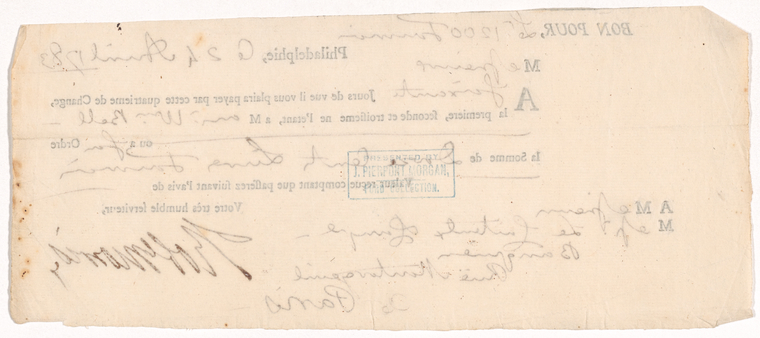 BON POUR, Lt 1200 Tournois
Philadelphie, Ce 24 Avril 1783
Messieurs
A Soixante Jours de vue il vous plaira payer par cette quatrieme de Change,
la premiere, seconde et troisieme ne l'etant, a M onsr Wm Bell
ou a Son Ordre
la Somme de Douze Cent Livres Tournois
Valeur reçue comptant que passerez suivant l'avis de
J. PIERPONT MORGAN.
FORD COLLECTION.
Votre très humble serviteur,
Robt Morris
A M essieurs
M
Le Couteulx
Banquiers
Rue Montorgueil
à Paris